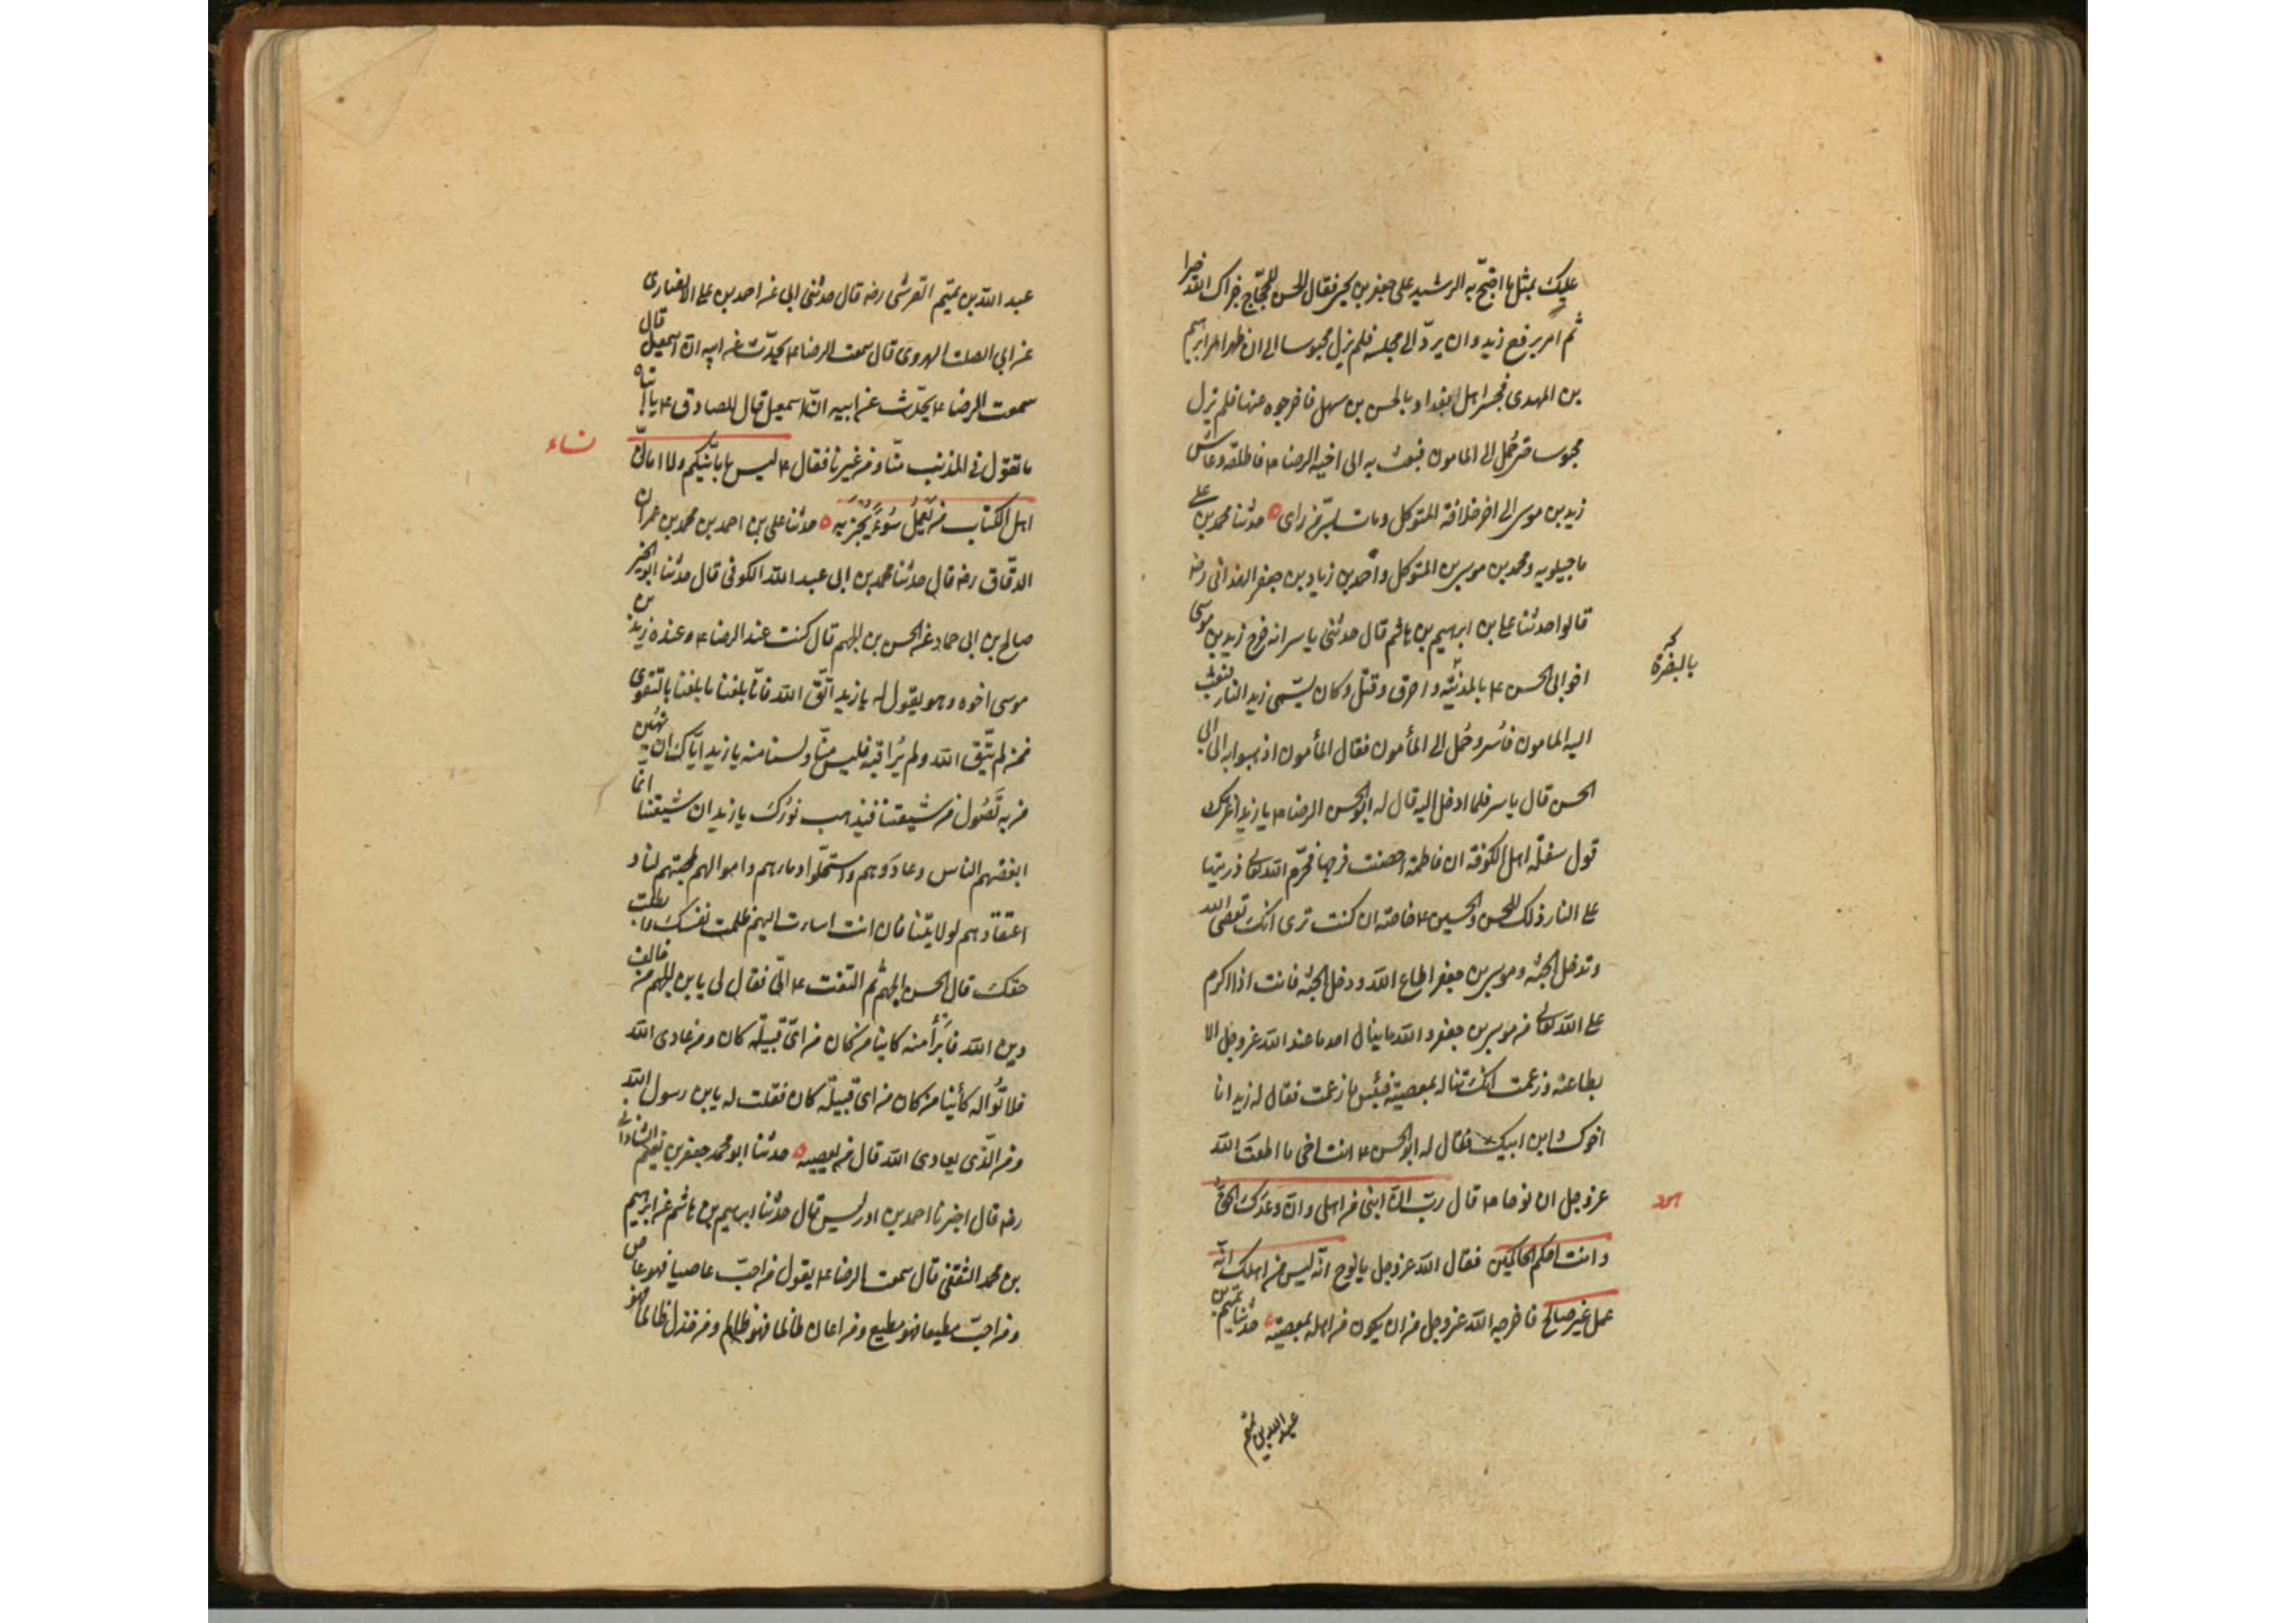 عليك بمثل ما احتجّ به الرشيد على جعفر بن يحيى فقال الحسن للحجّاج جزاك الله خيرا
ثم امر برفع زيد وان يردّ الى محبسه فلم يزل محبوسا الى ان ظهر امر ابراهيم
بن المهدى فجسر اهل بغداد بالحسن بن سهل فاخرجوه عنها فلم يزل
محبوسا حتى حُمل الى المامون فبعث به الى اخيه الرضا ع فاطلقه وعاش
زيد بن موسى الى اخر خلافة المتوكل ومات بسرّ من راى ٥ حدثنا محمد بن على
ماجيلويه ومحمد بن موسى بن المتوكل واحمد بن زياد بن جعفر الهمدانى رضه
قالوا حدثنا على بن ابراهيم بن هاشم قال حدثنى ياسر انه خرج زيد بن موسى
اخو ابى الحسن ع بالمدينة واحرق وقتل وكان يسمّى زيد النار فبعث
بالبصرة
اليه المامون فاُسر وحُمل الى المأمون فقال المأمون اذهبوا به الى ابى
الحسن قال ياسر فلما ادخل اليه قال له ابو الحسن الرضا ع يا زيد اغرّك
قول سفلة اهل الكوفة ان فاطمة احصنت فرجها فحرّم الله تعالى ذريتها
على النار ذلك للحسن والحسين ع خاصة ان كنت ترى انك تعصى الله
وتدخل الجنة وموسى بن جعفر اطاع الله ودخل الجنة فانت اذا اكرم
على الله تعالى من موسى بن جعفر والله ما ينال احد ما عند الله عز وجل الا
بطاعته وزعمت انك تناله بمعصيته فبئس ما زعمت فقال له زيد انا
اخوك وابن ابيك فقال له ابو الحسن ع انت اخى ما اطعت الله
عز وجل ان نوحا ع قال ربّ انّ ابنى من اهلى وانّ وعدك الحقّ
هود
وانت احكم الحاكمين فقال الله عز وجل يا نوح انّه ليس من اهلك انّه
عمل غير صالح فاخرجه الله عز وجل من ان يكون من اهله بمعصيته ٥ حدثنا تميم بن
عبد الله بن تميم
عبد الله بن تميم القرشى رضه قال حدثنى ابى عن احمد بن على الانصارى
عن ابى الصلت الهروى قال سمعت الرضا ع يحدّث عن ابيه انّ اسمعيل قال
سمعت الرضا ع يحدّث عن ابيه انّ اسمعيل قال للصادق ع يا ابتاه
ما تقول فى المذنب منّا ومن غيرنا فقال ع ليس بامانيّكم ولا امانىّ
نساء
اهل الكتاب من يعمل سُوءً يُجزَ به ٥ حدثنا على بن احمد بن محمد بن عمران
الدقّاق رضه قال حدثنا محمد بن ابى عبد الله الكوفى قال حدثنا ابو الخير
صالح بن ابى حماد عن الحسن بن الجهم قال كنت عند الرضا ع وعنده زيد بن
موسى اخوه وهو يقول له يا زيد اتّق الله فانّا بلغنا ما بلغنا بالتقوى
فمن لم يتّق الله ولم يُراقبه فليس منّا ولسنا منه يا زيد ايّاك ان تهين
من به تَصُول من شيعتنا فيذهب نورك يا زيد ان شيعتنا انما
ابغضهم الناس وعادَوهم واستحلّوا دماءهم واموالهم لمحبتهم لنا و
اعتقادهم لولايتنا فان انت اسات اليهم ظلمت نفسك وابطلت
حقك قال الحسن بن الجهم ثم التفت ع الىّ فقال لى يا بن الجهم من خالف
دين الله فابرأ منه كاينا من كان من اىّ قبيلة كان ومن عادى الله
فلا تُواله كائنا من كان من اى قبيلة كان فقلت له يا بن رسول الله
ومن الّذى يعادى الله قال من يعصيه ٥ حدثنا ابو محمد جعفر بن نعيم الشاذانى
رضه قال اخبرنا احمد بن ادريس قال حدثنا ابراهيم بن هاشم عن ابراهيم
بن محمد الثقفى قال سمعت الرضا ع يقول من احبّ عاصيا فهو عاص
ومن احبّ مطيعا فهو مطيع ومن اعان ظالما فهو ظالم ومن خذل ظالما فهو